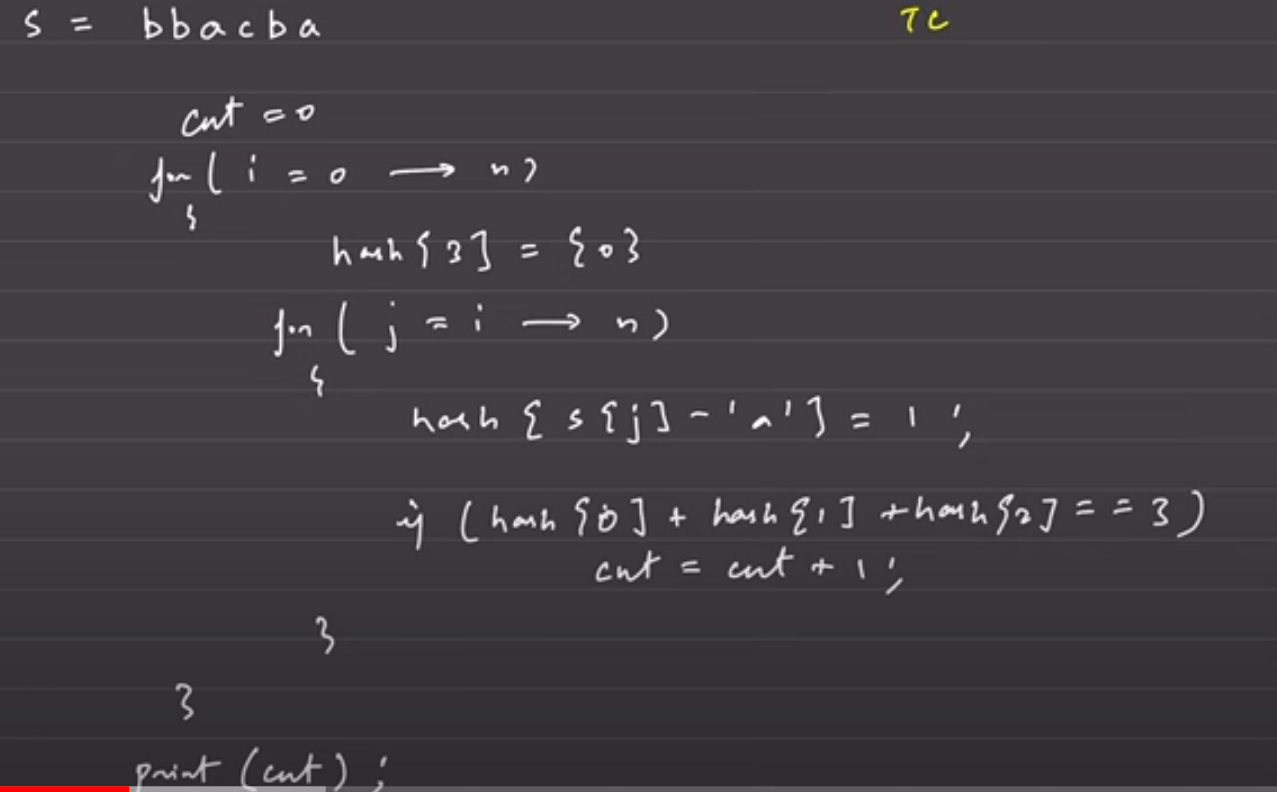 s = bbacba TC
cnt = 0
for ( i = 0 → n)
{
hash[3] = {0}
for ( j = i → n)
{
hash [ s[j] - 'a'] = 1 ;
if (hash [0] + hash [1] + hash[2] == 3)
cnt = cnt + 1 ;
}
}
print (cnt) ;